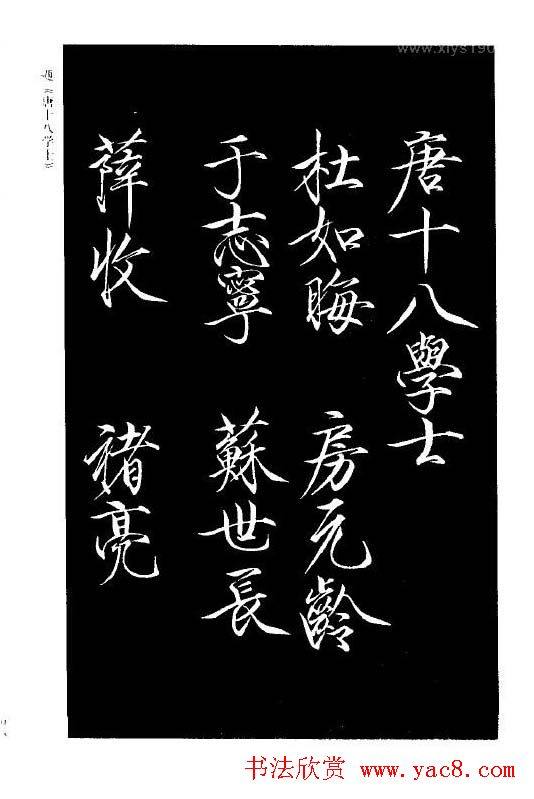 唐十八學士
杜如晦 房元齡
于志寧 蘇世長
薛收 褚亮
题《唐十八学士》
书法欣赏 www.yac8.com